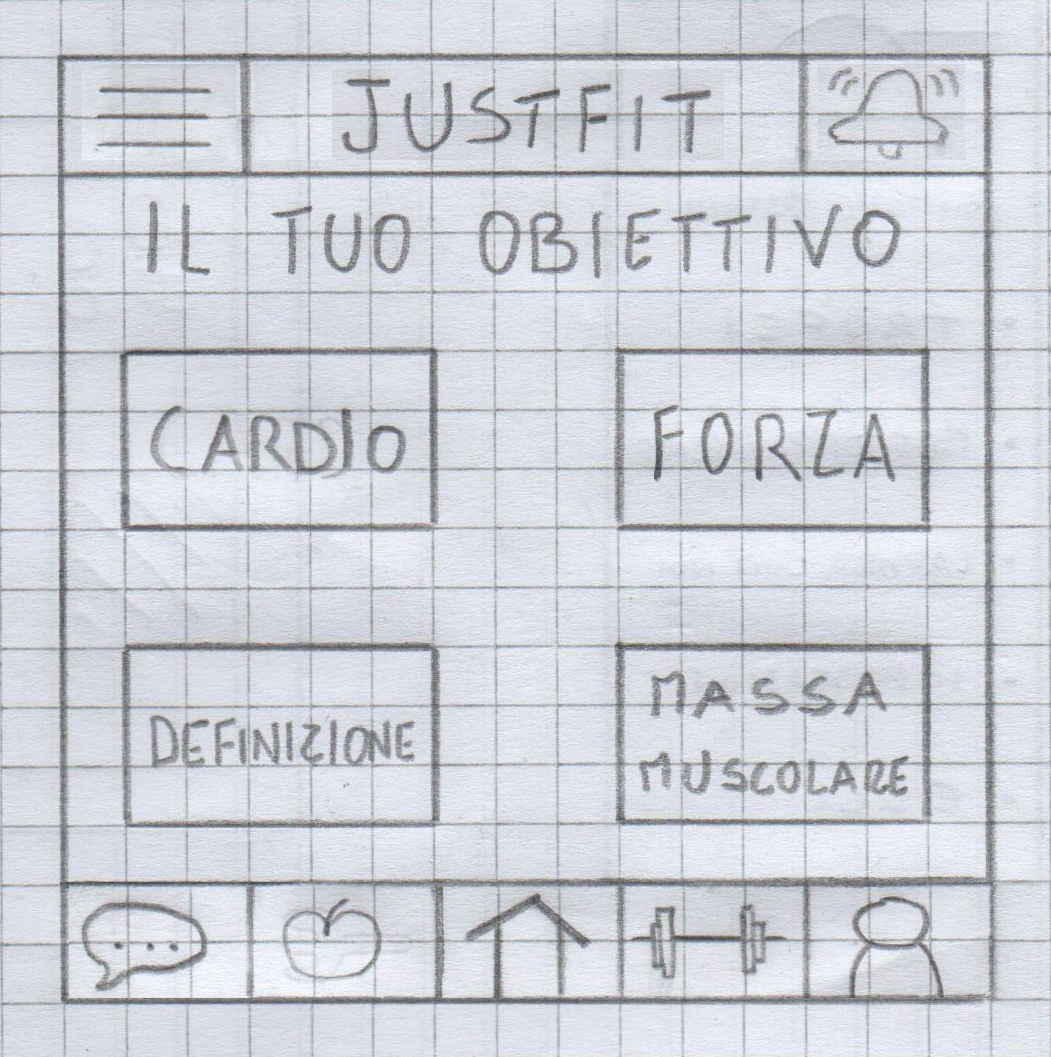 JUSTFIT
IL TUO OBIETTIVO
CARDIO
FORZA
DEFINIZIONE
MASSA
MUSCOLARE